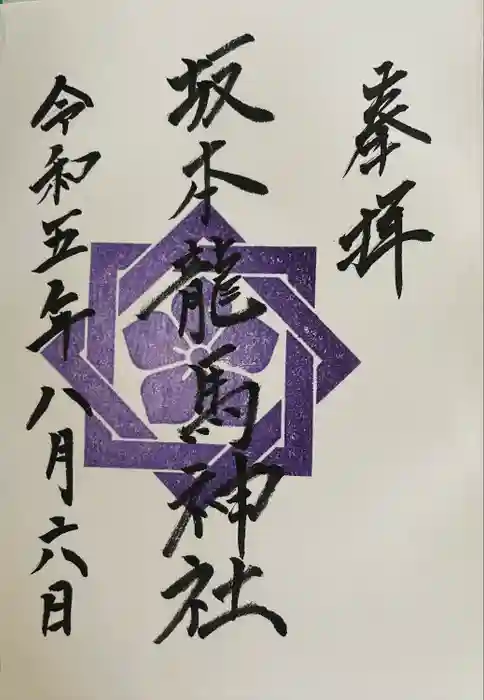 奉拝
坂本龍馬神社
令和五年八月六日